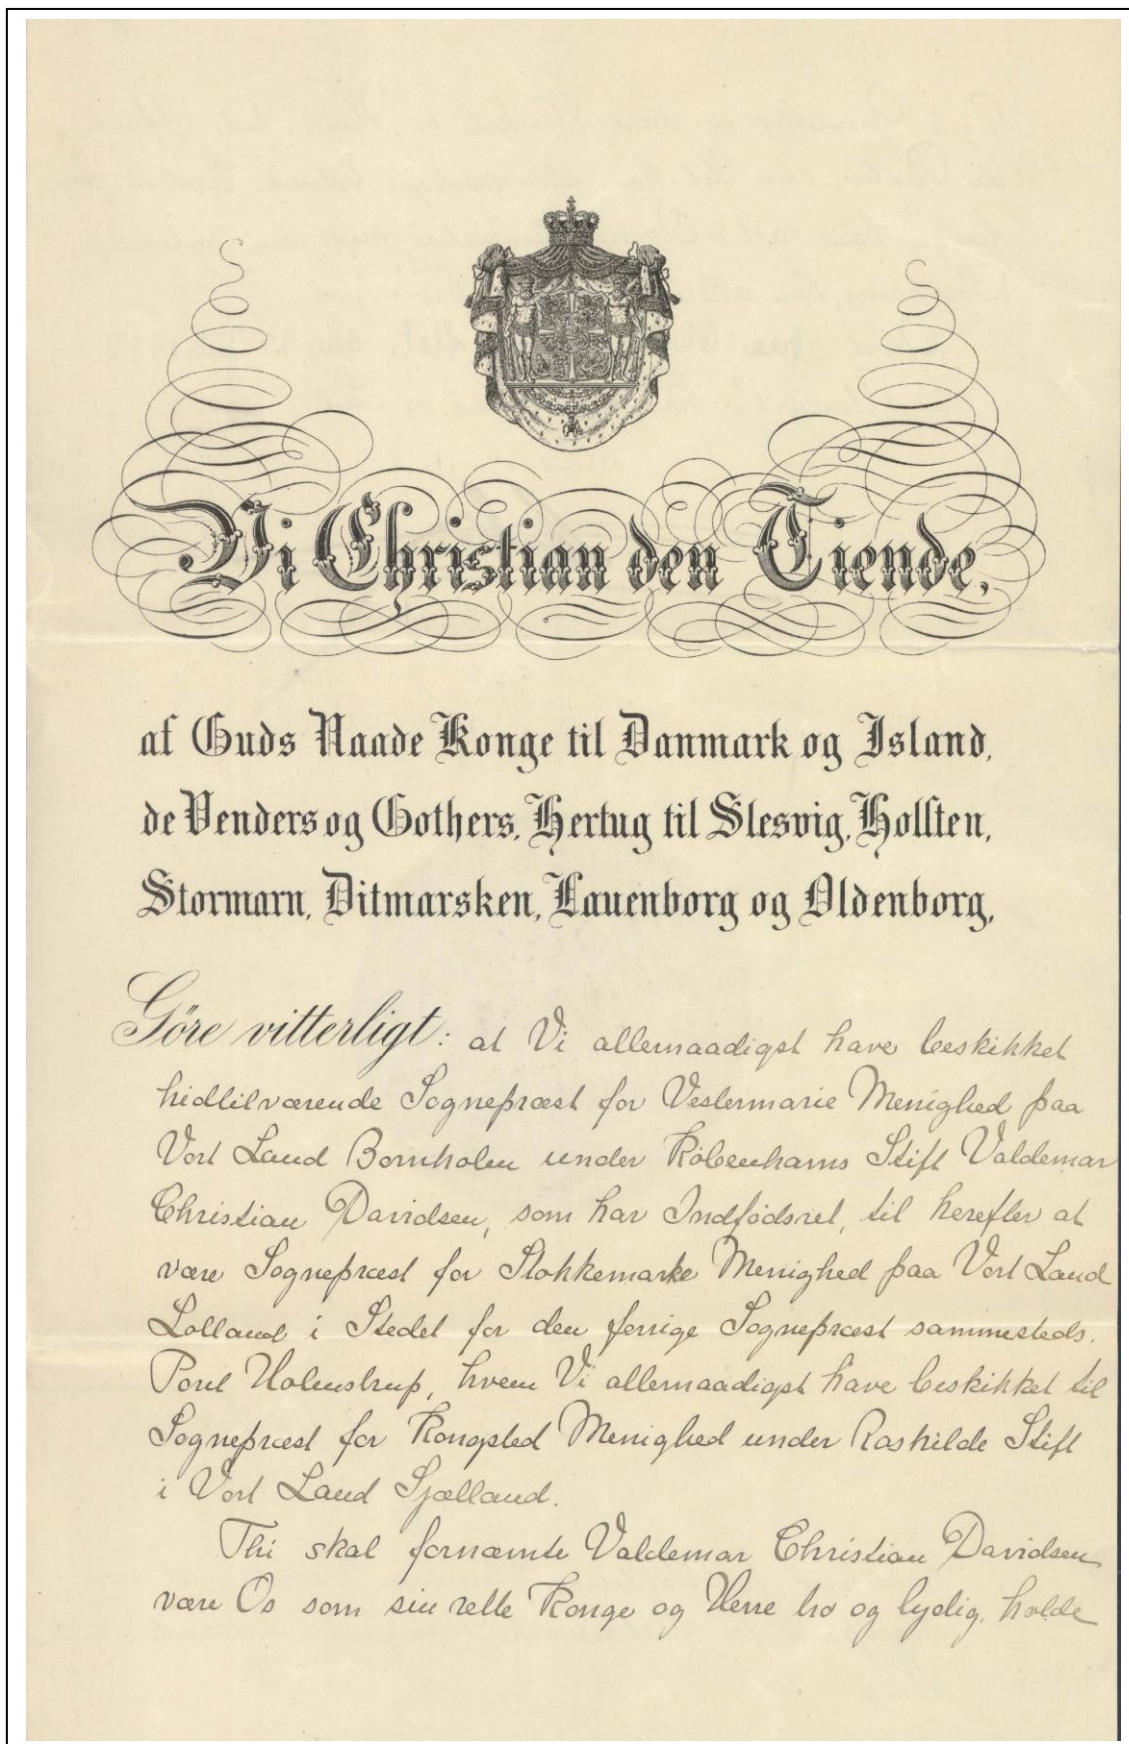 Vi Christian den Tiende,
af Guds Naade Konge til Danmark og Island,
de Venders og Gothers, Hertug til Slesvig, Holsten,
Stormarn, Ditmarsken, Lauenborg og Oldenborg,
Göre vitterligt: at Vi allernaadigst have beskikket
hidtilværende Sognepræst for Vestermarie Menighed paa
Vort Land Bornholm under Københavns Stift Valdemar
Christian Davidsen, som har Indfødsret, til herefter at
være Sognepræst for Stokkemarke Menighed paa Vort Land
Lolland i Stedet for den forrige Sognepræst sammesteds.
Poul Holmstrup, hvem Vi allernaadigst have beskikket til
Sognepræst for Kongsted Menighed under Roskilde Stift
i Vort Land Sjælland.
Thi skal fornævnte Valdemar Christian Davidsen
være Os som sin rette Konge og Herre tro og lydig, holde